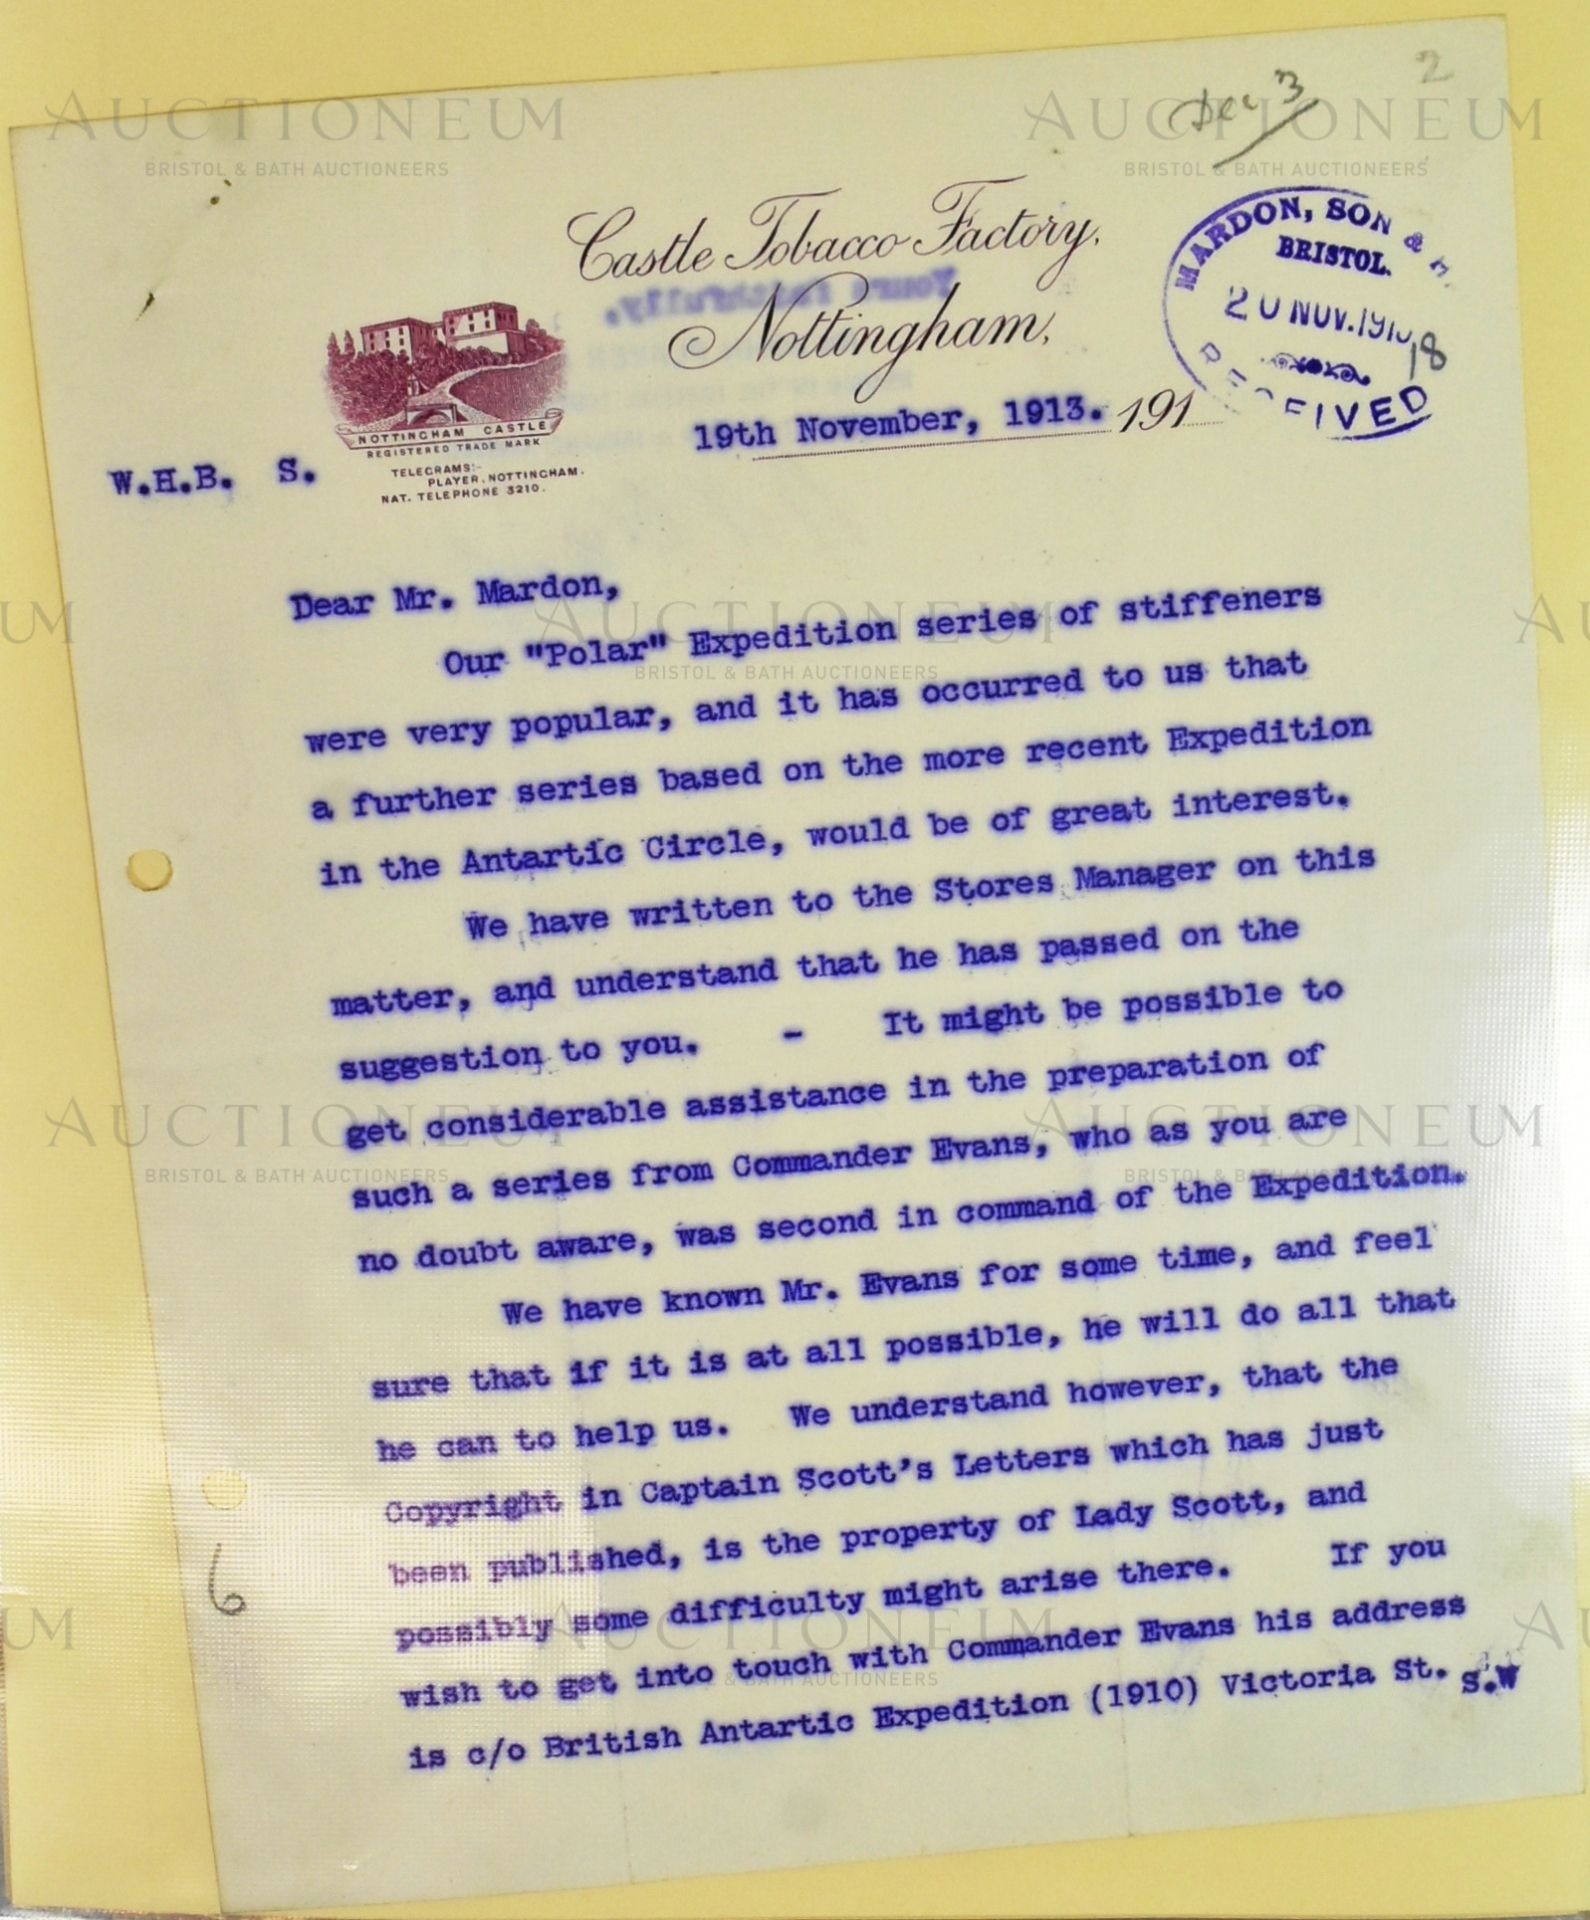 2
Dec 3
AUCTIONEUM
BRISTOL & BATH AUCTIONEERS
AUCTIONEUM
BRISTOL & BATH AUCTIONEERS
Castle Tobacco Factory,
Nottingham,
MARDON, SON &
BRISTOL.
20 NOV. 191
18
RECEIVED
Yours faithfully,
NOTTINGHAM CASTLE
REGISTERED TRADE MARK
TELEGRAMS:-
PLAYER, NOTTINGHAM.
NAT. TELEPHONE 3210.
19th November, 1913. 191
W.H.B. S.
Dear Mr. Mardon,
Our "Polar" Expedition series of stiffeners
were very popular, and it has occurred to us that
a further series based on the more recent Expedition
in the Antartic Circle, would be of great interest.
We have written to the Stores Manager on this
matter, and understand that he has passed on the
suggestion to you. - It might be possible to
get considerable assistance in the preparation of
such a series from Commander Evans, who as you are
no doubt aware, was second in command of the Expedition.
We have known Mr. Evans for some time, and feel
sure that if it is at all possible, he will do all that
he can to help us. We understand however, that the
Copyright in Captain Scott's Letters which has just
been published, is the property of Lady Scott, and
possibly some difficulty might arise there. If you
wish to get into touch with Commander Evans his address
is c/o British Antartic Expedition (1910) Victoria St. S.W
6
UM
AUCTIONEUM
BRISTOL & BATH AUCTIONEERS
AU
AUCTIONEUM
BRISTOL & BATH AUCTIONEERS
AUCTIONEUM
BRISTOL & BATH AUCTIONEERS
UM
AUCTIONEUM
BRISTOL & BATH AUCTIONEERS
AU